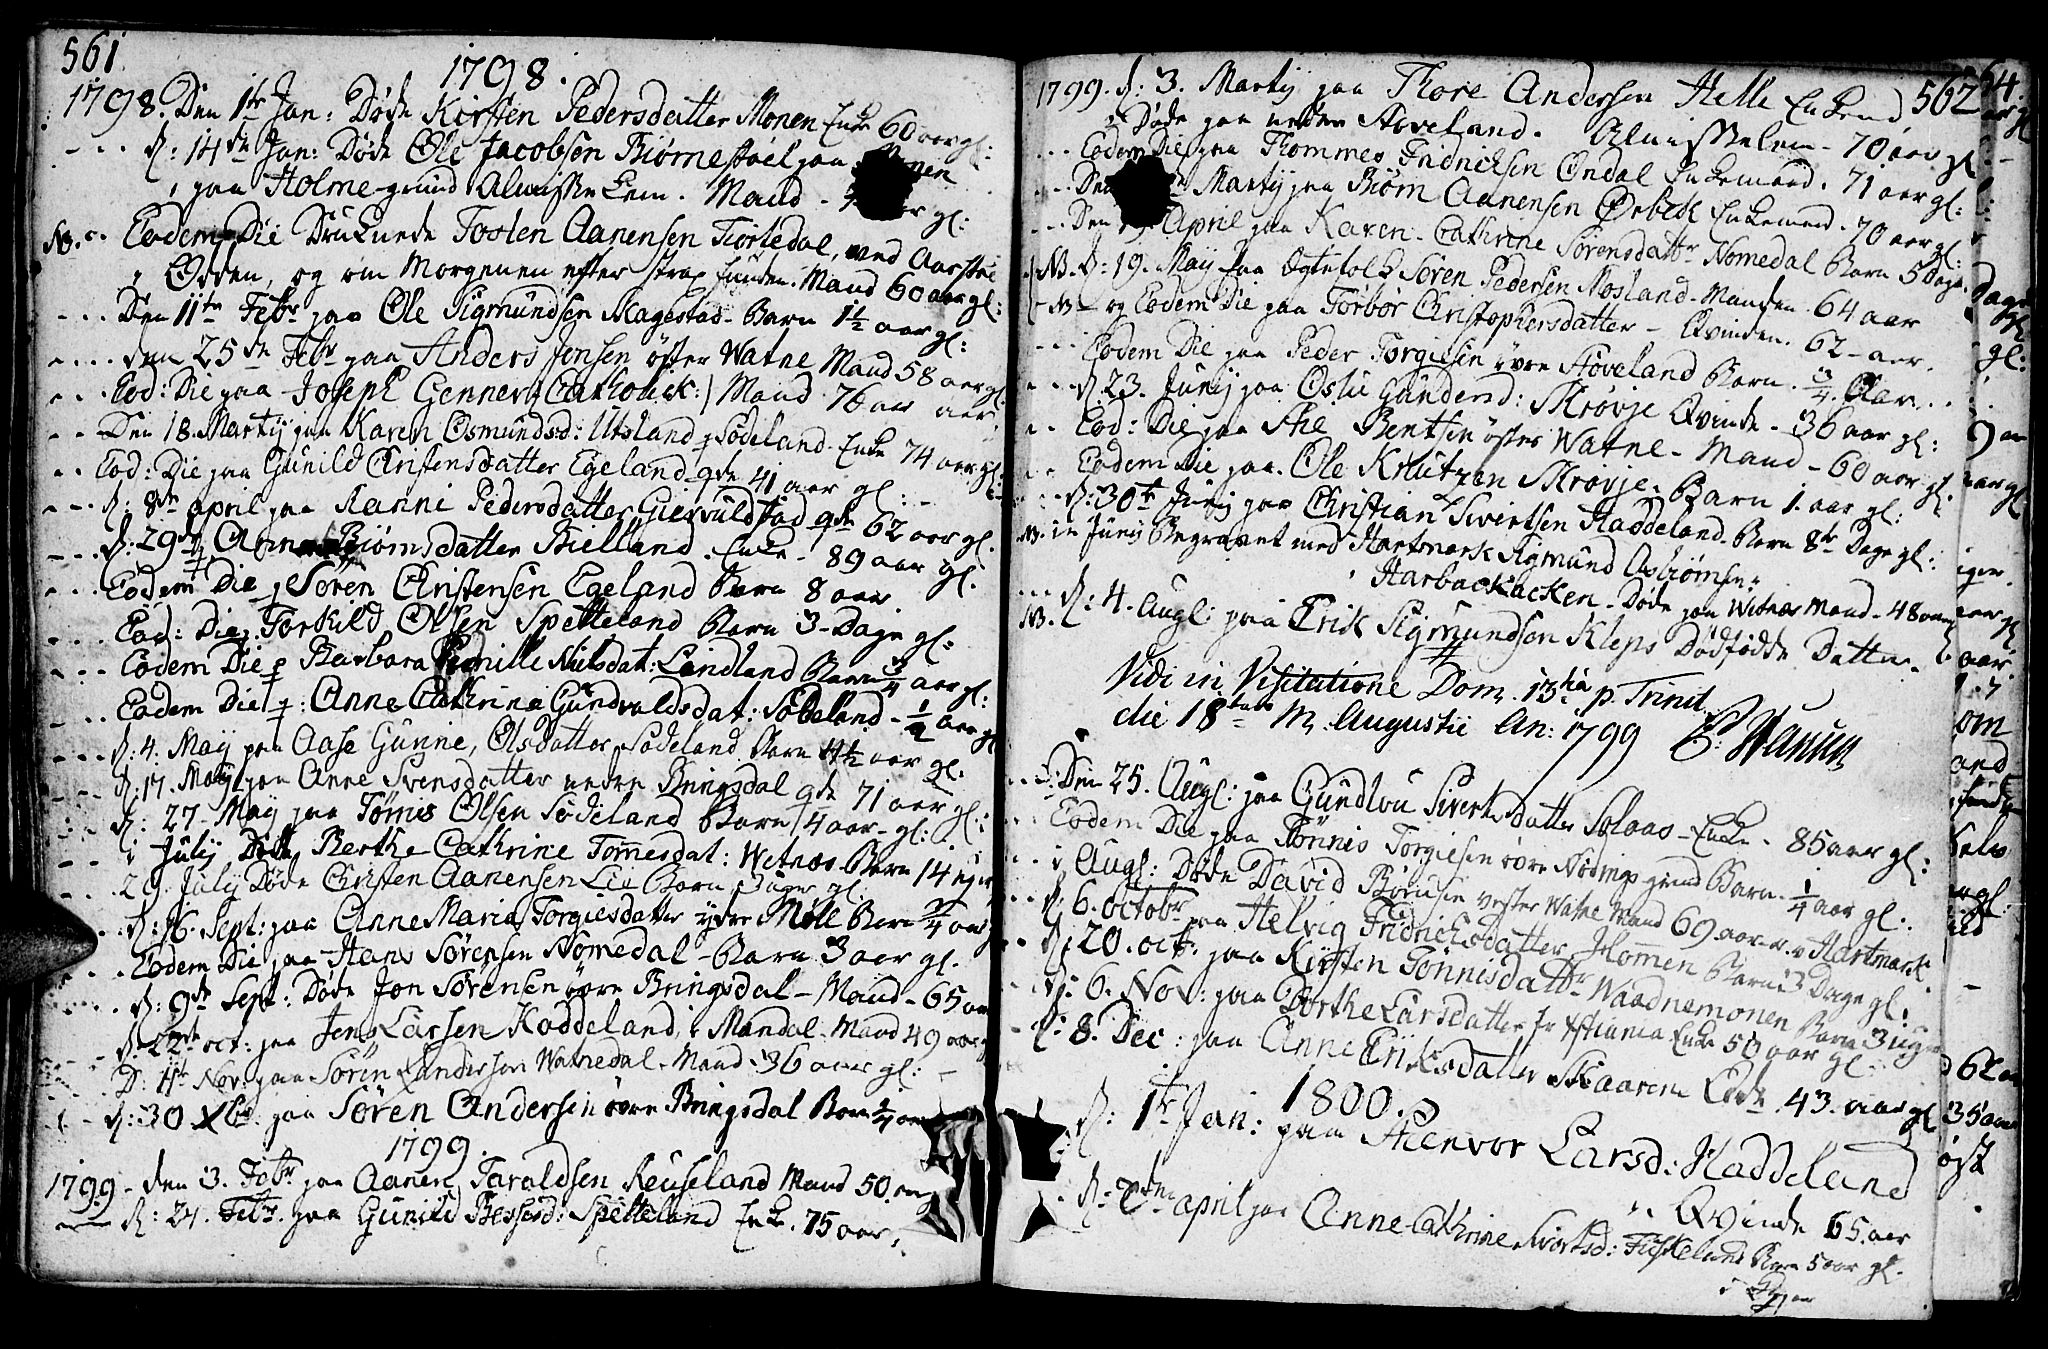 561
1798.
1798. Den 1te Jan: Døde Kirsten Pedersdatter Monen Enke 60 aar gl:
D: 14de Jan: Døde Ole Jacobsen Biørnestøel paa
paa Holme-grund Almisse Lem. Mand - gl:
NB. Eodem Die Druknede Tosten Aanensen Tiortedal, ved Aarstøe
Odden, og om Morgenen efter strax funden. Mand 60 aar gl:
Den 11te Febr paa Ole Sigmundsen Magestad - Barn 1 1/2 aar gl:
den 25de Febr paa Anders Jensen øster Watne Mand 58 aar gl:
Eod: Die paa Joseph Genner /: Catholick :/ Mand 76 aar
Den 18. Martij paa Karen Osmundsd: Utsland p Sødeland - Enke 74 aar gl:
Eod: Die paa Gunild Christensdatter Egeland qde 41 aar gl:
D: 8de april paa Ranni Pedersdatter Giervuldstad qde 62 aar gl.
D: 29de Anne Biørnsdatter Bielland. Enke - 89 aar gl.
Eodem Die p Søren Christensen Egeland Barn 8 aar
Eod: Die p Torkild Olsen Spetteland Barn 3 Dage gl:
Eodem Die p Barbara Pernille Nielsdat: Lindland Barn 3/4 aar gl:
Eodem Die p: Anne Cathrine Gundvaldsdat: Sødeland - 1/2 aar gl
D: 4. Maij paa Aase Gunne, Olsdatter, Sødeland Barn 4 1/2 aar gl:
D: 17. Maij paa Anne Svensdatter nedre Bringsdal qde 71 aar gl:
D: 27 Maij paa Tømes Olsen Sødeland Barn 1/4 aar gl:
i Julij Døde Berthe Cathrine Tommesdat: Wetnæs Barn 14 uger
29. Julij Døde Christen Aanensen Lie Barn 3 uger gl.
D: 16. Sept: paa Anne Maria Torgiesdatter ydre Møll Barn 3/4 aar
Eodem Die paa Hans Sørensen Nomedal - Barn 3 aar gl.
D: 9de Sept: Døde Jon Sørensen øvre Bringsdal - Mand - 65 aar
D: 22de oct: paa Jens Larsen Kaddeland, i Mandal. Mand 49 aar
D: 4te Nov: paa Søren Andersen Watnedal. Mand. 36 aar gl: -
D: 30 Xbr. paa Søren Andersen øvre Bringsdal Barn 1/4 aar
1799.
1799 - den 3. Febr paa Aanen Taraldsen Reuseland Mand 50. aar
D: 24. Febr. paa Gunild Bessesd: Spetteland Enke. 75 aar.
562
1799. D: 3. Martij paa Thore Andersen Helle Enkemd
Døde paa nedre Støveland. Almisselem - 70 aar gl
Eodem Die paa Thommes Fridrichsen Øndal Enkemand. 71 aar gl:
Den Martij paa Biørn Aanensen Ørbech Enkemand. 70 aar gl:
Den April paa Karen Cathrine Sørensdattr Nomedal Barn 5 Dage
NB. D: 19. Maij paa Ægtefolk Søren Pedersen Mosland - Manden. 64 aar
og Eodem Die paa Torbor Christophersdatter - Qvinden. 62 - aar.
Eodem Die paa Peder Torgiesen øvre Støveland Barn. 3/4 Aar.
D: 23. Junij paa Oslu Gundersd: Skrøvje Qvinde - 36 aar gl:
Eod: Die paa Ane Bentsen øster Watne - Mand - 60 aar gl.
Eodem Die paa Ole Knutzen Skrøvje. Barn 1. aar gl:
D: 30te Junij paa Christian Sivertsen Haddeland. Barn 8te Dage gl:
NB. in Junij Begravet med Hartmark Sigmund Osbiørnsen
Harbackbacken. Døde paa Wetnæs Mand - 48 aar
NB. D: 4. Augl: paa Erik Sigmundsen Kleps Dødfødde Datter.
Vidi in Visitatione Dom. 13tia p. Trinit.
die 18va M. Augustii An: 1799
Den 25. Augl: paa Gundlou Sivertsdatter Solaas - Enke - 85 aar gl:
Eodem Die paa Tønnis Torgiesen øvre Nødings grund Barn. 1/4 aar gl:
i Augl: Døde David Børusen vester Watne Mand 69 aar v. Hartmark
D: 6. octobr paa Helvig Fridrichsdatter Homen Barn 3 Dage gl.
D: 20. oct: paa Kirsten Tønnisdattr Waadnemonen Barn 3 uger
D: 6. Nov: paa Berthe Larsdatter fr Xstiania Enke 50 aar gl.
D: 8. Dec: paa Anne Eriksdatter Skaaren Enke. 43. aar gl
1800.
D: 1te Jan: paa Steenvor Larsd: Haddeland
Qvinde 65. aar
D: april paa Anne Cathrine Sivertsd: Fiskeland Barn 5 aar gl.